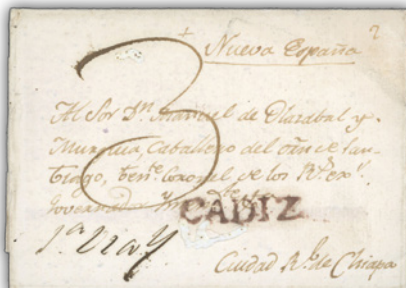 Nueva España
Al Sor Dn. Manuel de Olazabal y
Murguia, Caballero del de San-
tiago, Tente. Coronel de los Rs. exs.
Governador
CADIZ
3
1a Via
Ciudad Rl. de Chiapa